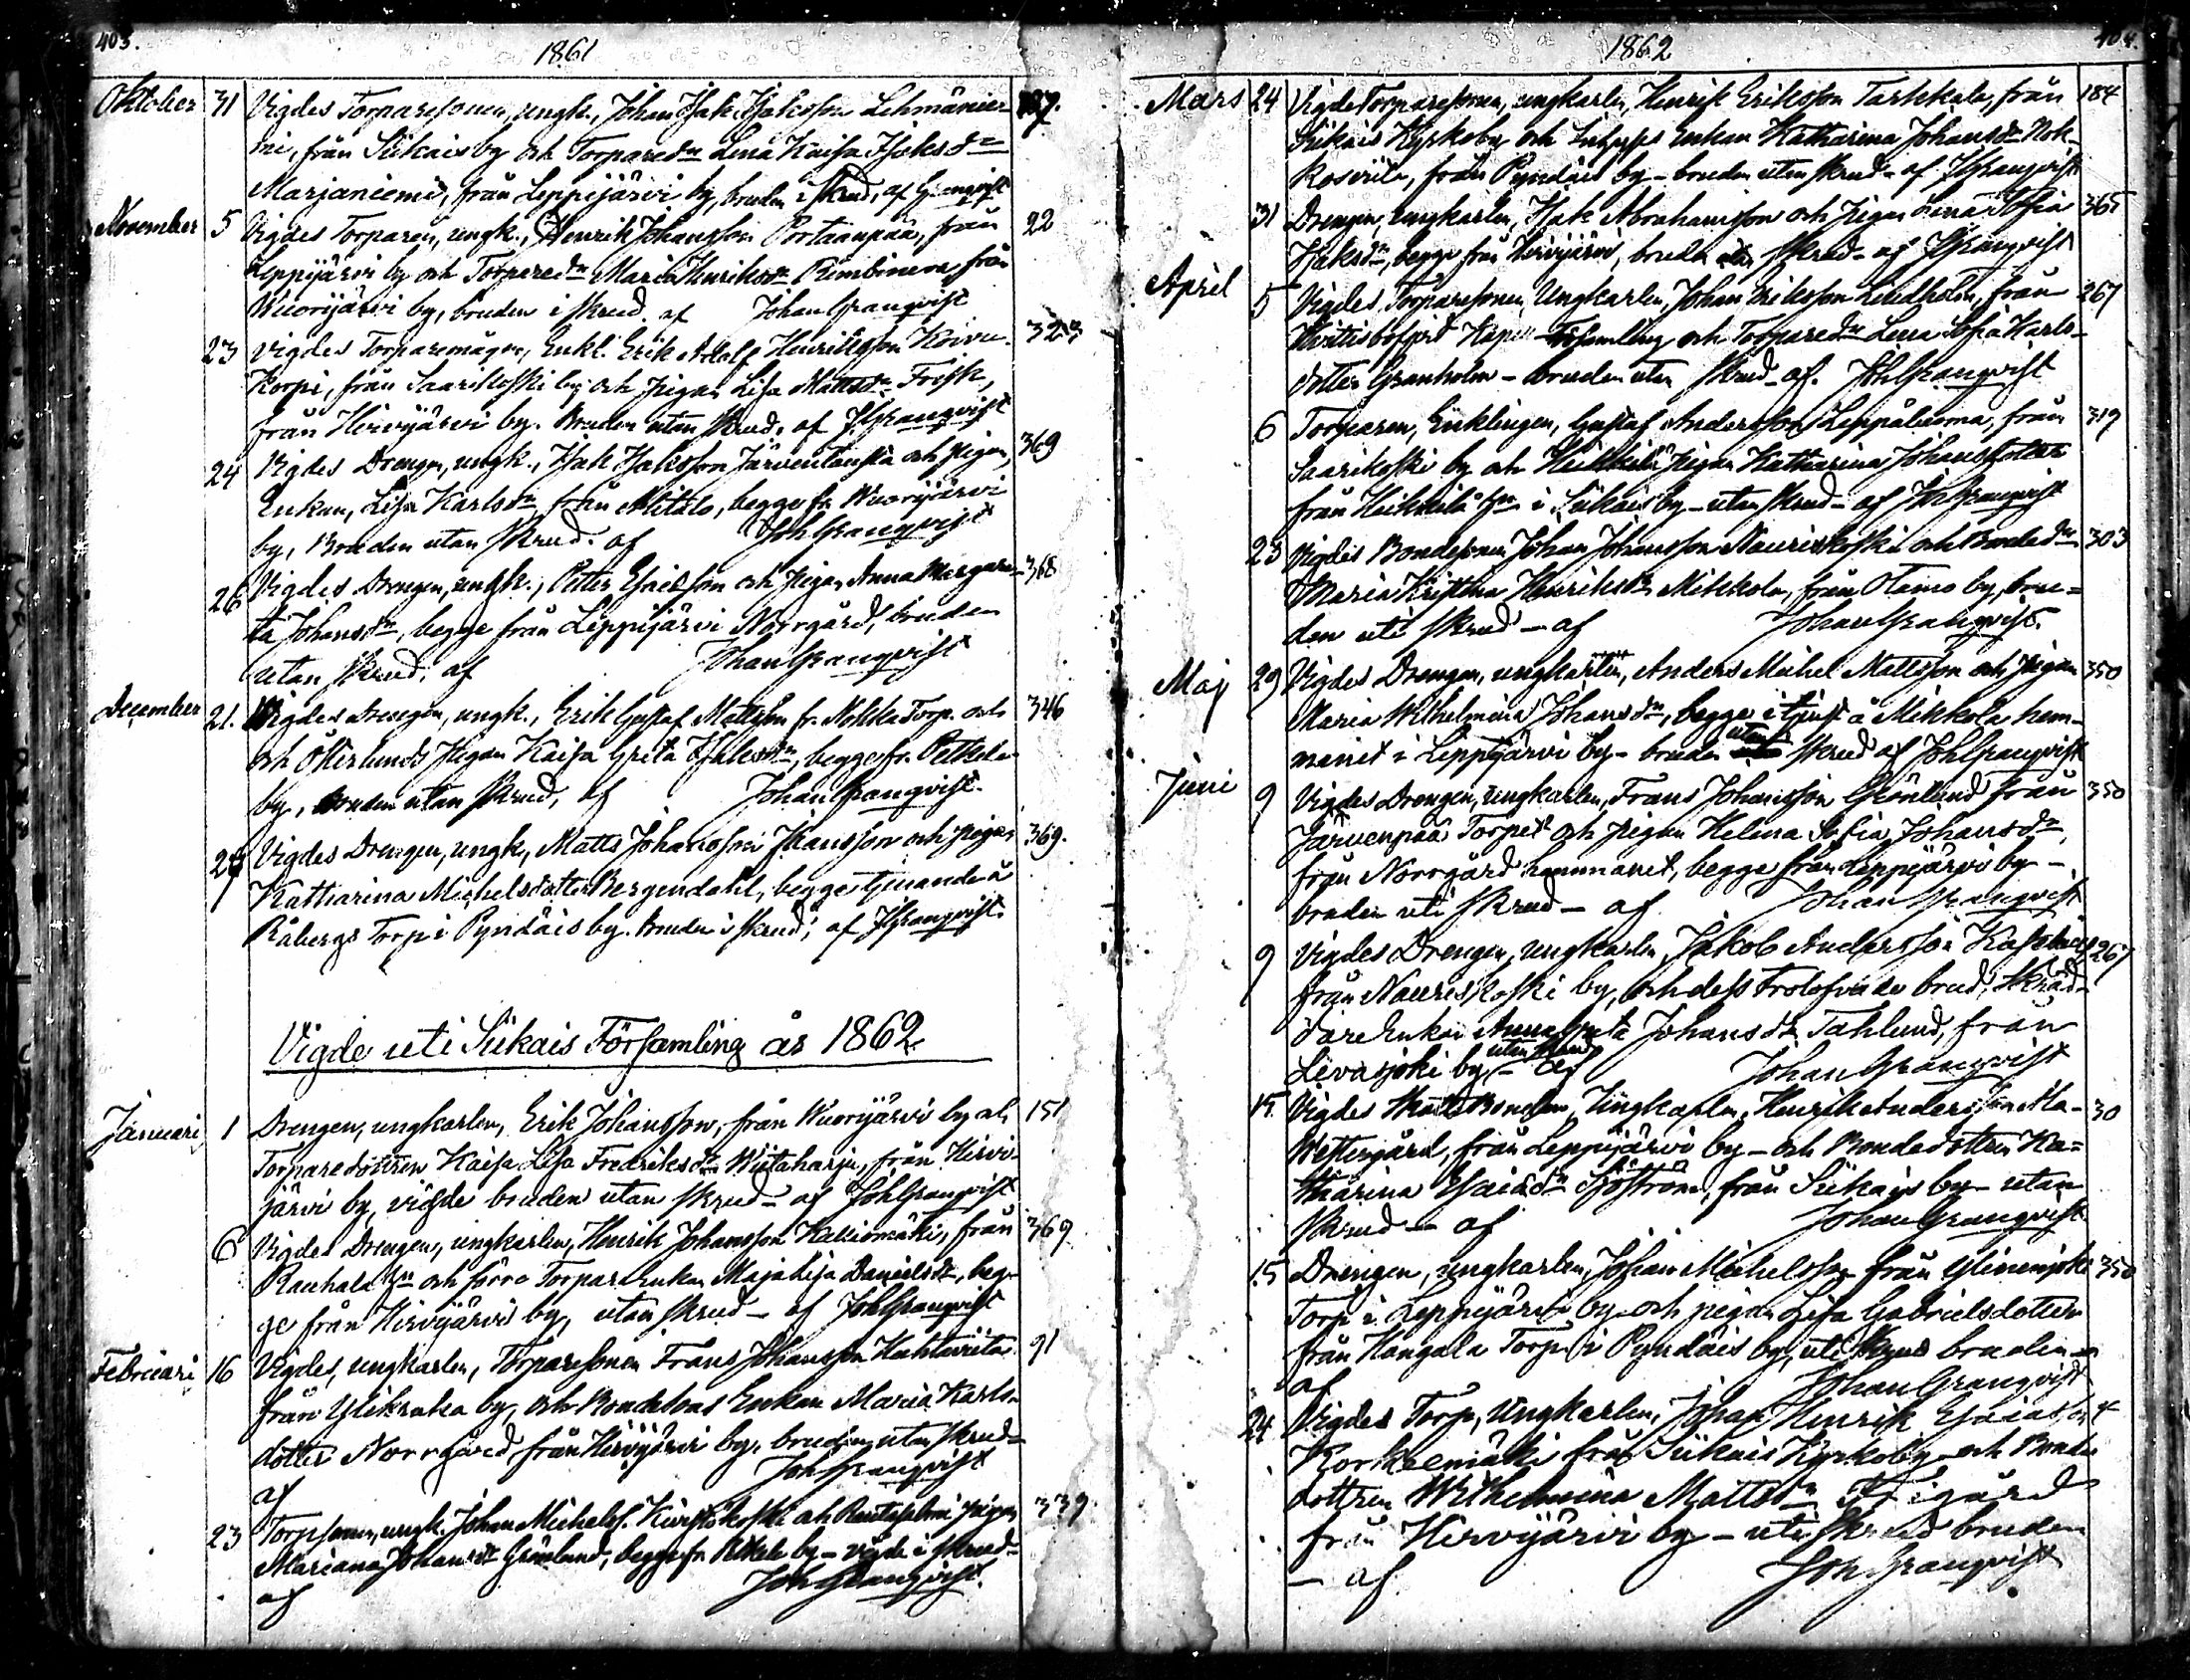 403.
1861
Oktober 31 Vigdes Torparesonen, ungk., Johan Isak Isaksson Lehmänier
mi, från Siikais by och Torparedr Lena Kaisa Isaksdr
Marjaniemi, från Leppijärvi by, bruden i skrud, af Granqvist
November 5 Vigdes Torparen, ungk., Henrik Johansson Portaanpää, från 22
Leppijärvi by och Torparedr Maria Henriksdr, från
Wuorijärvi by, bruden i skrud. af Johan Granqvist
23 Vigdes Torparemågen, Enkl. Erik Adolf Henriksson Koivu-
korpi, från Saarikoski by och pigan Lisa Mattsdr Frisk,
från Hirvijärvi by. Bruden utan skrud. af J Granqvist
24 Vigdes Drengen, ungk., Isak Isaksson Järventausta och pigan, 369
Enkan, Lisa Karlsdr från Mitalo, begge fr. Wuorijärvi
by, Bruden utan skrud. af Joh Granqvist
26 Vigdes Drengen, ungk., Petter Esaisson och Pigan Anna Margare- 368
ta Johansdr, begge från Leppijärvi Norrgård, bruden
utan skrud, af Johan Granqvist
December 21. Vigdes Drengen, ungk., Erik Gustaf Mattsson fr. Nokka Torp. och 346
och Österlunds Pigan Kaisa Greta Isaksdr, begge fr. Petkele
by, bruden utan skrud, af Johan Granqvist.
Vigdes Drengen, ungk., Matts Johansson och pigan 369.
Katharina Michelsdotter Bergendahl, begge tjenande å
Råbergs Torp i Pyndäis by. Bruden i skrud; af J Granqvist.
Vigde uti Siikais Församling år 1862
Januari 1 Drengen, ungkarlen, Erik Johansson, från Wuorijärvi by och 151
Torparedottren Kaisa Lisa Fredriksdr Wiitaharju, från Hirvi-
järvi by, vigde bruden utan skrud - af Joh Granqvist
6 Vigdes Drengen, ungkarlen, Henrik Johansson Kalliomäki, från 369
Rauhala hn och förra Torpar Enkan Maja Lisa Danielsdr, beg-
ge från Hirvijärvi by, utan skrud - af Joh Granqvist
Februari 16 Vigdes, ungkarlen, Torparesonen Frans Johansson 91
från Ylikraka by, och Bondesons Enkan Maria Karls-
dotter Norrgård från Hirvijärvi by, bruden utan skrud -
af Joh Granqvist
23 Torpsonen, ungk. Johan Michelss. och pigan 339
Mariana Johansdr Grönlund, begge fr. Petkele by - vigde i skrud -
af Joh Granqvist.
1862
404.
Mars 24 Vigdes Torparesonen, ungkarlen, Henrik Eriksson Tarkkala, från 184
Siikais Kyrkoby och Enkan Katharina Johansdr Nok-
från Pyndäis by - bruden utan skrud - af J Granqvist
31 Drengen, ungkarlen, Isak Abrahamsson och pigan Lena Sofia 365
Isaksdr, begge från Hirvijärvi, bruden utan skrud - af J Granqvist
April 5 Vigdes Torparesonen, Ungkarlen, Johan Eriksson Lindholm, från 267
Kapell Församling och Torparedr Lena Sofia Karls-
dotter Granholm - bruden utan skrud - af. Joh Granqvist
6 Torparen, Enklingen, Gustaf Andersson Leppäluoma, från 319
Saarikoski by och Heikkilä pigan Katharina Johansdotter
från Heikkilä hn i Siikais by - utan skrud - af Joh Granqvist
23 Vigdes Bondesonen Johan Johansson Nauriskoski och Bondedr 303
Maria Kristina Henriksdr Mikkola, från Otamo by, bru-
den uti skrud - af Johan Granqvist.
Maj 29 Vigdes Drengen, ungkarlen, Anders Michel Mattsson och pigan 350
Maria Wilhelmina Johansdr, begge i tjenst å Mikkola hem-
manet i Leppijärvi by - bruden utan skrud af Joh Granqvist
Juni 9 Vigdes Drengen, ungkarlen, Frans Johansson Grönlund från 350
Järvenpää Torpet och pigan Helena Sofia Johansdr,
från Norrgård hemmanet, begge från Leppijärvi by -
bruden uti skrud - af Johan Granqvist
9 Vigdes Drengen, ungkarlen, Jakob Andersson 267
från Nauriskoski by, och dess trolofvade brud, Skräd-
dare Enkan Anna Greta Johansdr Tahlund, från
Levasjoki by, - utan skrud af Johan Granqvist
15. Vigdes Bondeson, Ungkarlen, Henrik Andersson Ala- 30
Westergård, från Leppijärvi by - och Bondedottren Ka-
tharina Esaiädr Sjöström, från Siikais by - utan
skrud - af Johan Granqvist.
15 Drengen, ungkarlen, Johan Michelsson från Ylinenjoki 350
Torp i Leppijärvi by och pigan Lisa Gabrielsdotter
från Kangala Torp i Pyndäis by, uti skrud bruden -
af Johan Granqvist
24 Vigdes Torp., Ungkarlen, Johan Henrik Esaiass. 4
Korkeemäki från Siikais Kyrkoby - och Bonde
dottren Wilhelmina Mattsdr
från Hirvijärvi by - uti skrud bruden
- af Joh. Granqvist